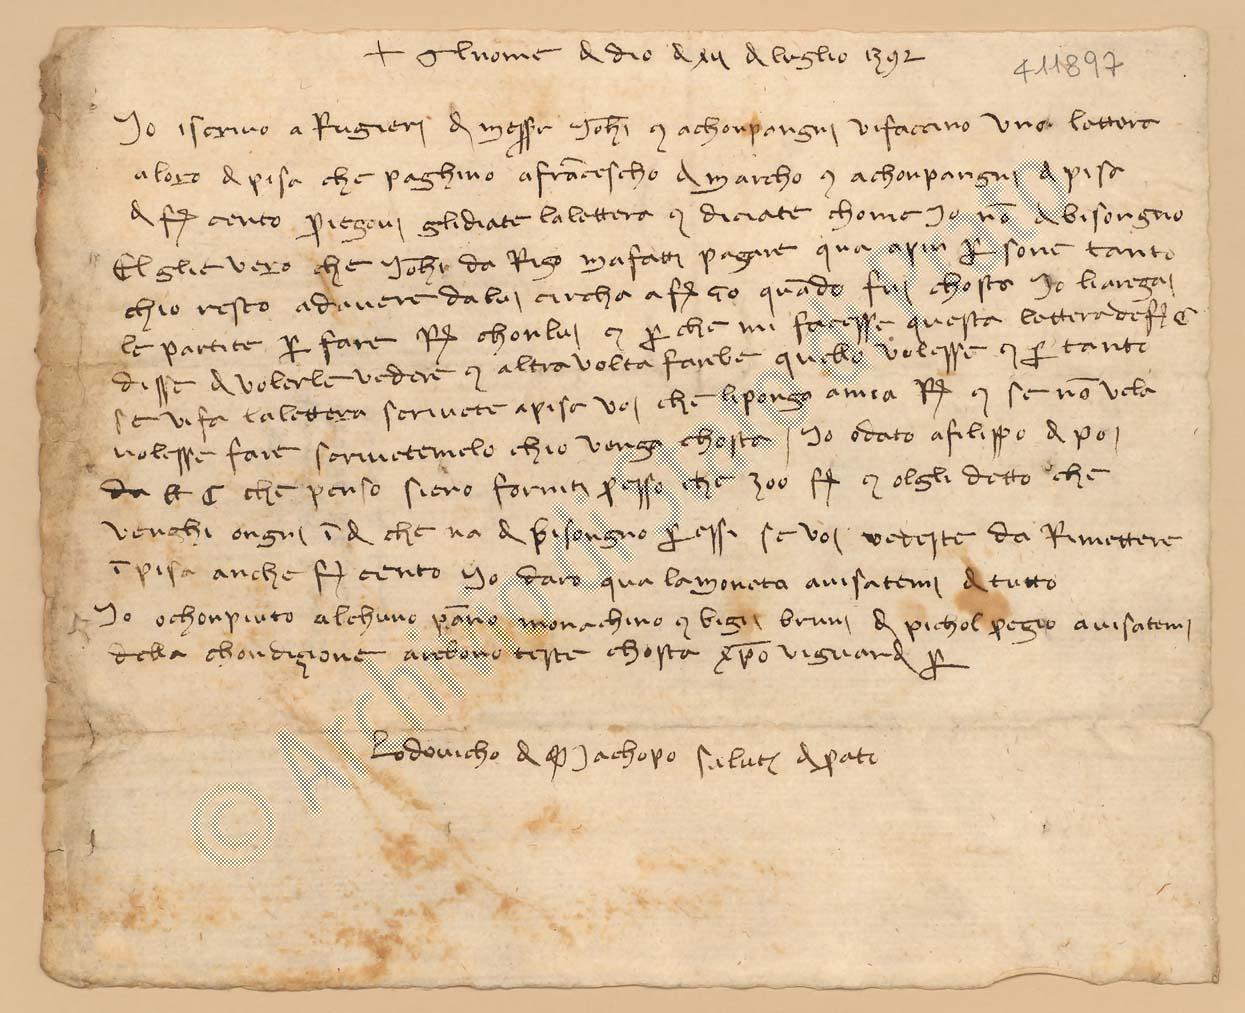 + Al nome di dio di xii di luglio 1392
411897
Io iscrivo a Rugieri di messer Johi e achonpangni vi faccino una lettera
a loro di pisa che paghino a francescho di marcho e achonpangni di pisa
di f cento priegovi gli diate la lettera e diciate chome io non di bisongno
El gli e vero che Johi da Rigo m a fatti pagare qua a piu persone tanto
ch io resto ad avere da lui circha a f 50 quando fui chosta Io li aregai
le partite per fare R chon lui e per che mi facesse questa lettera de f C
disse di volerle vedere e altra volta farebe quello volesse e per tanto
se vi fa la lettera scrivete a pisa voi che li pongha a mia R e se non ve la
volesse fare scrivetemelo ch io vengha chosta Io o dato a filippo di poi
da che penso siero forniti presso che 300 f e olgli detto che
venghi ongni di che n a di bisongno per essi se voi vedeste da Rimettere
in pisa anche f cento Io daro qua la moneta avisatemi di tutto
Io o chonpiuto alchuno panno monachino e bigi bruni di pichol pregio avisatemi
della chondizione arebono teste chosta xpo vi guardi per
Lodovicho di ser Jachopo saluti di prato
© Archivio di Stato di Prato